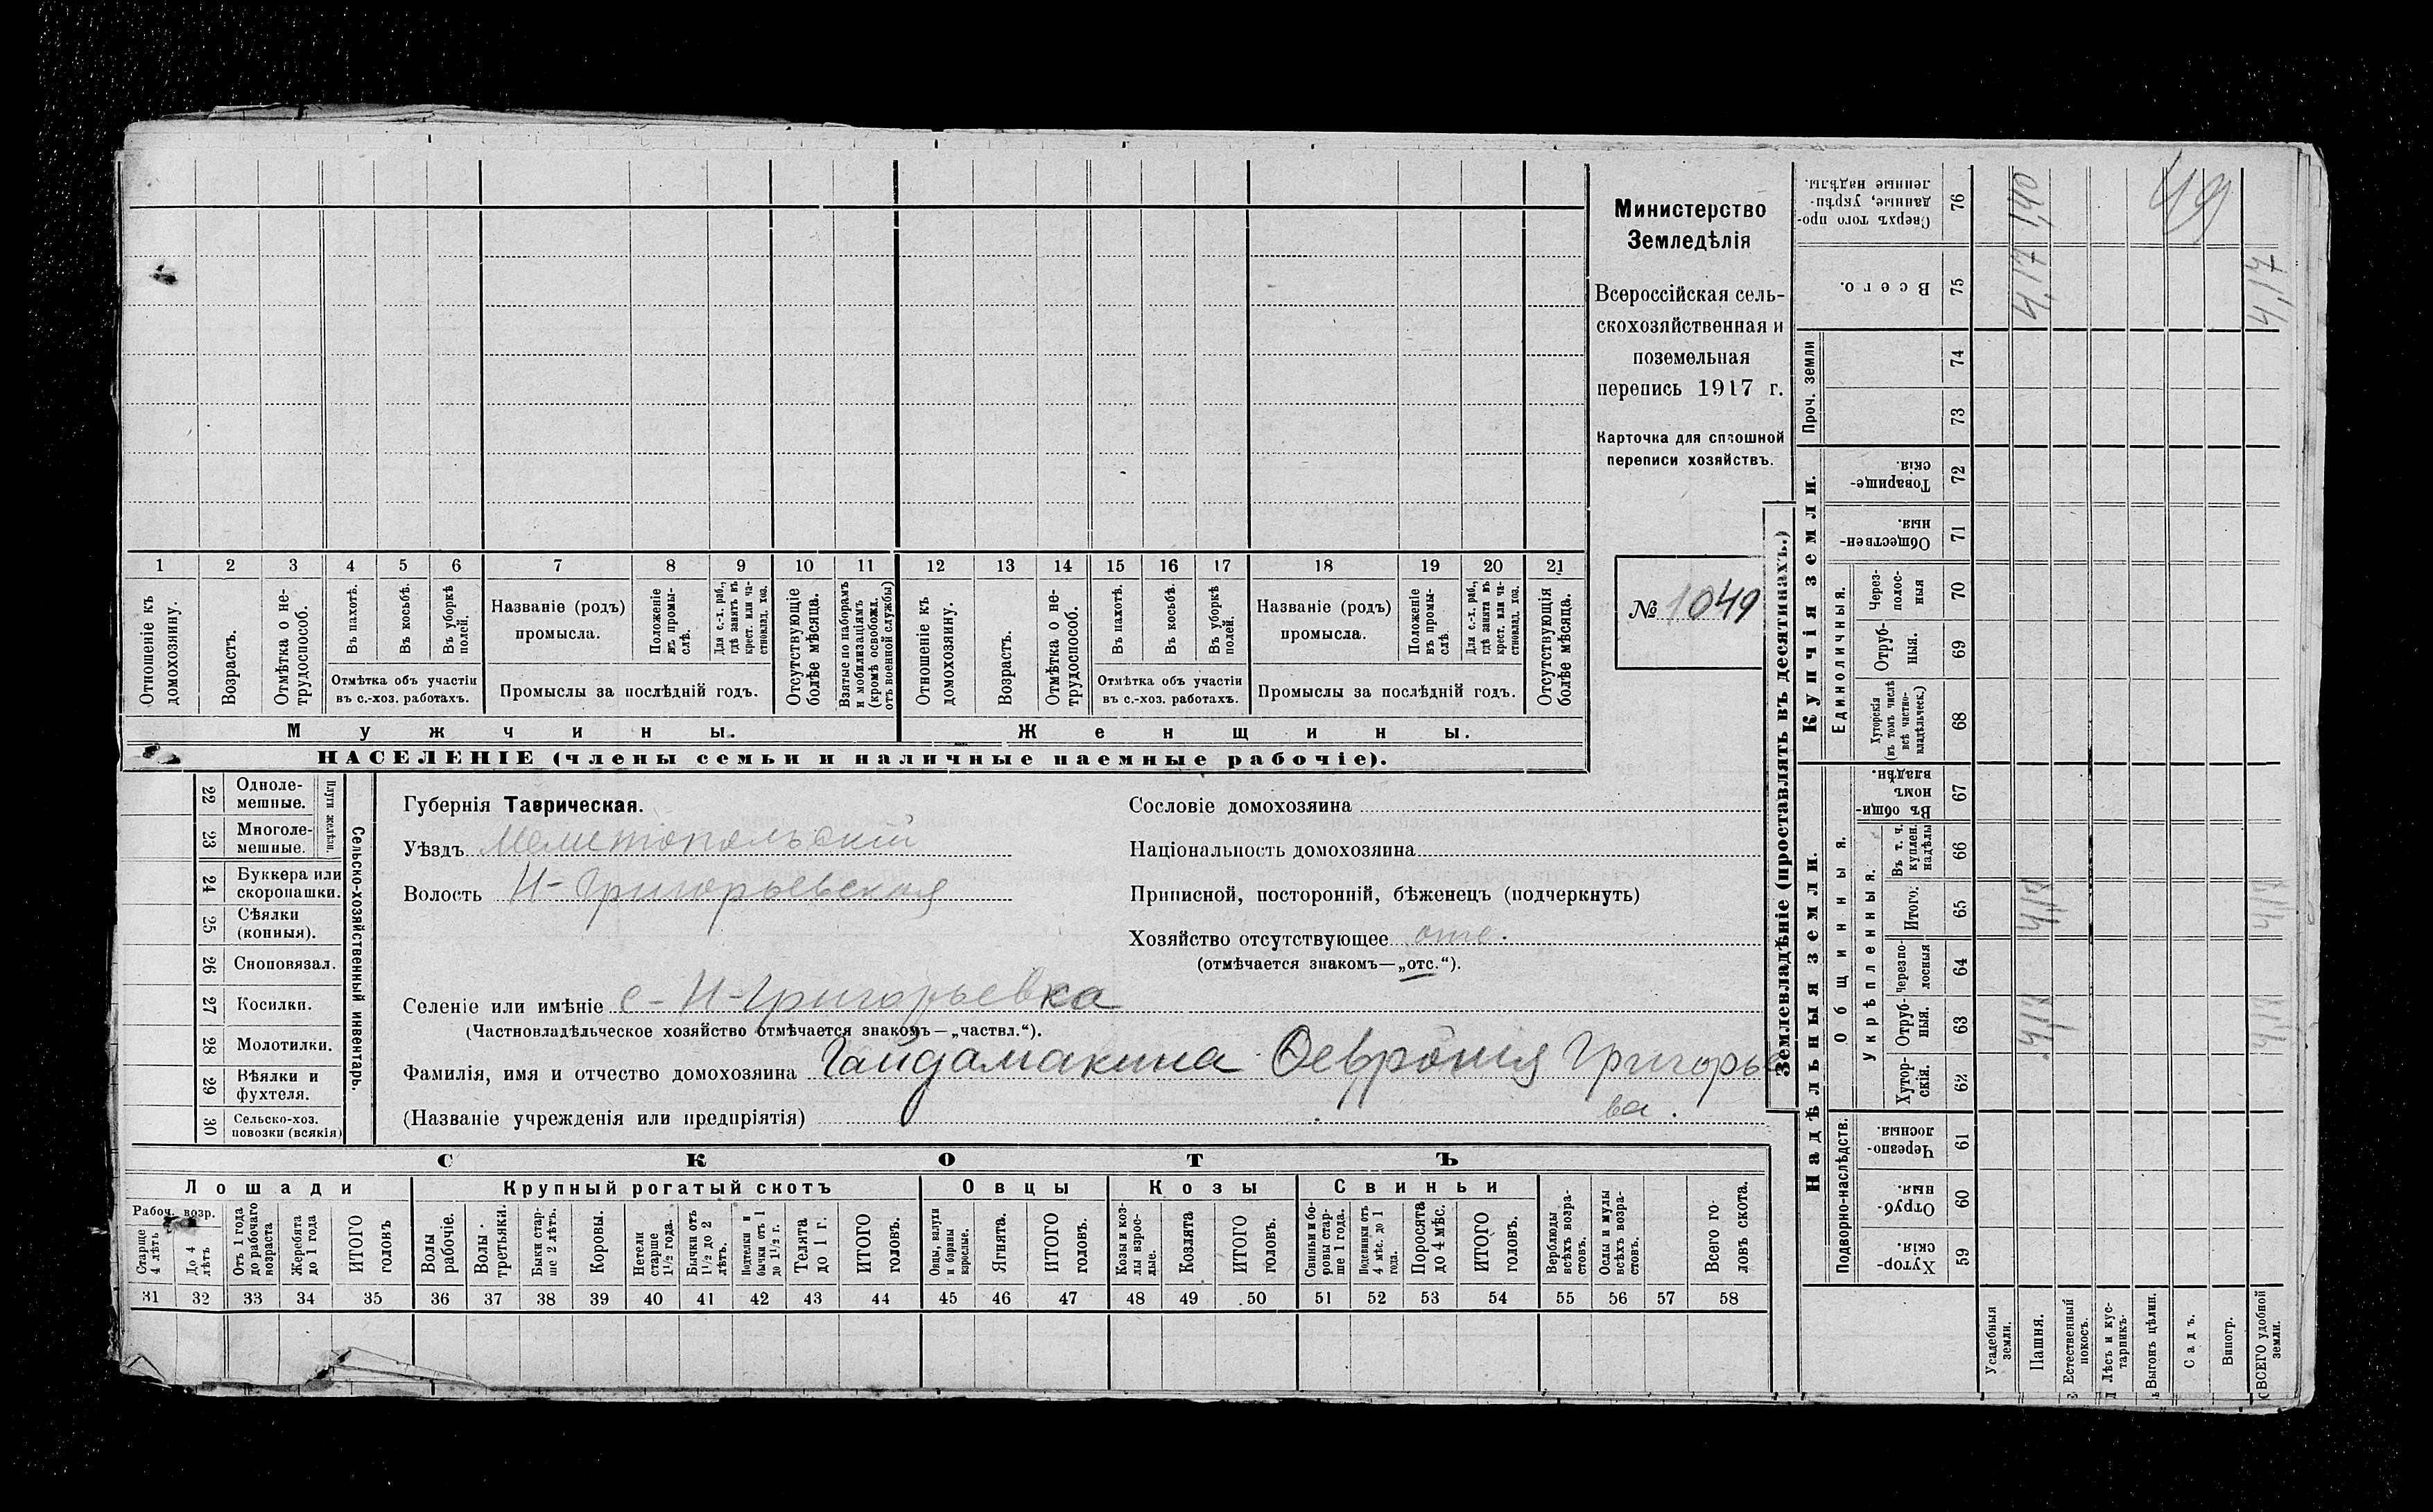 1 2 3 4 5 6 7 8 9 10 11 12 13 14 15 16 17 18 19 20 21
Отношеніе къ домохозяину.
Возрастъ.
Отмѣтка о не-
трудоспособ.
Въ пахотѣ.
Въ косьбѣ.
Въ уборкѣ
полей.
Отмѣтка объ участіи
въ с.-хоз. работахъ.
Названіе (родъ)
промысла.
Положеніе
въ промы-
слѣ.
Для с.-х. раб.,
гдѣ занятъ въ
крест. или ча-
стновлад. хоз.
Промыслы за послѣдній годъ.
Отсутствующіе
болѣе мѣсяца.
Взятые по наборамъ
и мобилизаціямъ
(кромѣ освобожд.
отъ военной службы)
Отношеніе къ
домохозяину.
Возрастъ.
Отмѣтка о не-
трудоспособ.
Въ пахотѣ.
Въ косьбѣ.
Въ уборкѣ
полей.
Отмѣтка объ участіи
въ с.-хоз. работахъ.
Названіе (родъ)
промысла.
Положеніе
въ промы-
слѣ.
Для с.-х. раб.,
гдѣ занята въ
крест. или ча-
стновлад. хоз.
Промыслы за послѣдній годъ.
Отсутствующія
болѣе мѣсяца.
Мужчины.
Женщины.
НАСЕЛЕНІЕ (члены семьи и наличные наемные рабочіе).
Министерство
Земледѣлія
Всероссійская сель-
скохозяйственная и
поземельная
перепись 1917 г.
Карточка для сплошной
переписи хозяйствъ.
№ 1049
22 Одноле-
мешные.
23 Многоле-
мешные.
Плуги желѣзн.
24 Буккера или
скоропашки.
25 Сѣялки
(конныя).
26 Сноповязал.
27 Косилки.
28 Молотилки.
29 Вѣялки и
фухтеля.
30 Сельско-хоз.
повозки (всякія)
Сельско-хозяйственный инвентарь.
Губернія Таврическая.
Уѣздъ Мелитопольскій
Волость Н-Григорьевская
Сословіе домохозяина
Національность домохозяина
Приписной, посторонній, бѣженецъ (подчеркнуть)
Хозяйство отсутствующее отс.
(отмѣчается знакомъ—„отс.“).
Селеніе или имѣніе с-Н-Григорьевка
(Частновладѣльческое хозяйство отмѣчается знакомъ—„частвл.“).
Фамилія, имя и отчество домохозяина Гайдамакина Февронія Григорье
ва.
(Названіе учрежденія или предпріятія)
СКОТЪ
Лошади
Крупный рогатый скотъ
Овцы
Козы
Свиньи
Рабоч. возр.
Старше
4 лѣтъ
До 4
лѣтъ
Отъ 1 года
до рабочаго
возраста
Жеребята
до 1 года
ИТОГО
головъ
Волы
рабочіе.
Волы
третьяки.
Быки стар-
ше 2 лѣтъ.
Коровы.
Нетели
старше
1½ года.
Бычки отъ
1½ до 2
лѣтъ.
Подтелки и
бычки отъ 1
до 1½ г.
Телята
до 1 г.
ИТОГО
головъ.
Овцы, валухи
и бараны
взрослые.
Ягнята.
ИТОГО
головъ.
Козы и коз-
лы взрос-
лые.
Козлята
ИТОГО
головъ.
Свиньи и бо-
ровы стар-
ше 1 года.
Подсвинки отъ
4 мѣс. до 1
года.
Поросята
до 4 мѣс.
ИТОГО
головъ.
Верблюды
всѣхъ возра-
стовъ.
Ослы и мулы
всѣхъ возра-
стовъ.
Всего го-
ловъ скота.
31 32 33 34 35 36 37 38 39 40 41 42 43 44 45 46 47 48 49 50 51 52 53 54 55 56 57 58
Землевладѣніе (проставлять въ десятинахъ.)
Купчія земли.
Надѣльныя земли.
Проч. земли
Единоличныя.
Общинныя.
Укрѣпленныя.
Подворно-наслѣдств.
Сверхъ того про-
данные, укрѣп-
ленные надѣлы. 76
Всего. 75
74
73
Товарище-
скія. 72
Обществен-
ныя. 71
Через-
полос-
ныя 70
Отруб-
ныя. 69
Хуторскія
(въ томъ числѣ
всѣ частно-
владѣльческ.) 68
Въ общин-
номъ
владѣн. 67
Въ т. ч.
куплен.
надѣлы 66
Итого. 65
Черезпо-
лосныя 64
Отруб-
ныя. 63
Хутор-
скія. 62
Черезпо-
лосныя. 61
Отруб-
ныя. 60
Хутор-
скія. 59
Усадебныя
земли.
Пашня.
Естественный
покосъ.
Лѣсъ и кус-
тарникъ.
Выгонъ цѣлин.
Садъ.
Виногр.
ВСЕГО удобной
земли.
1,40
4,17
49
4,17
4,17
4,17
4,17
4,17